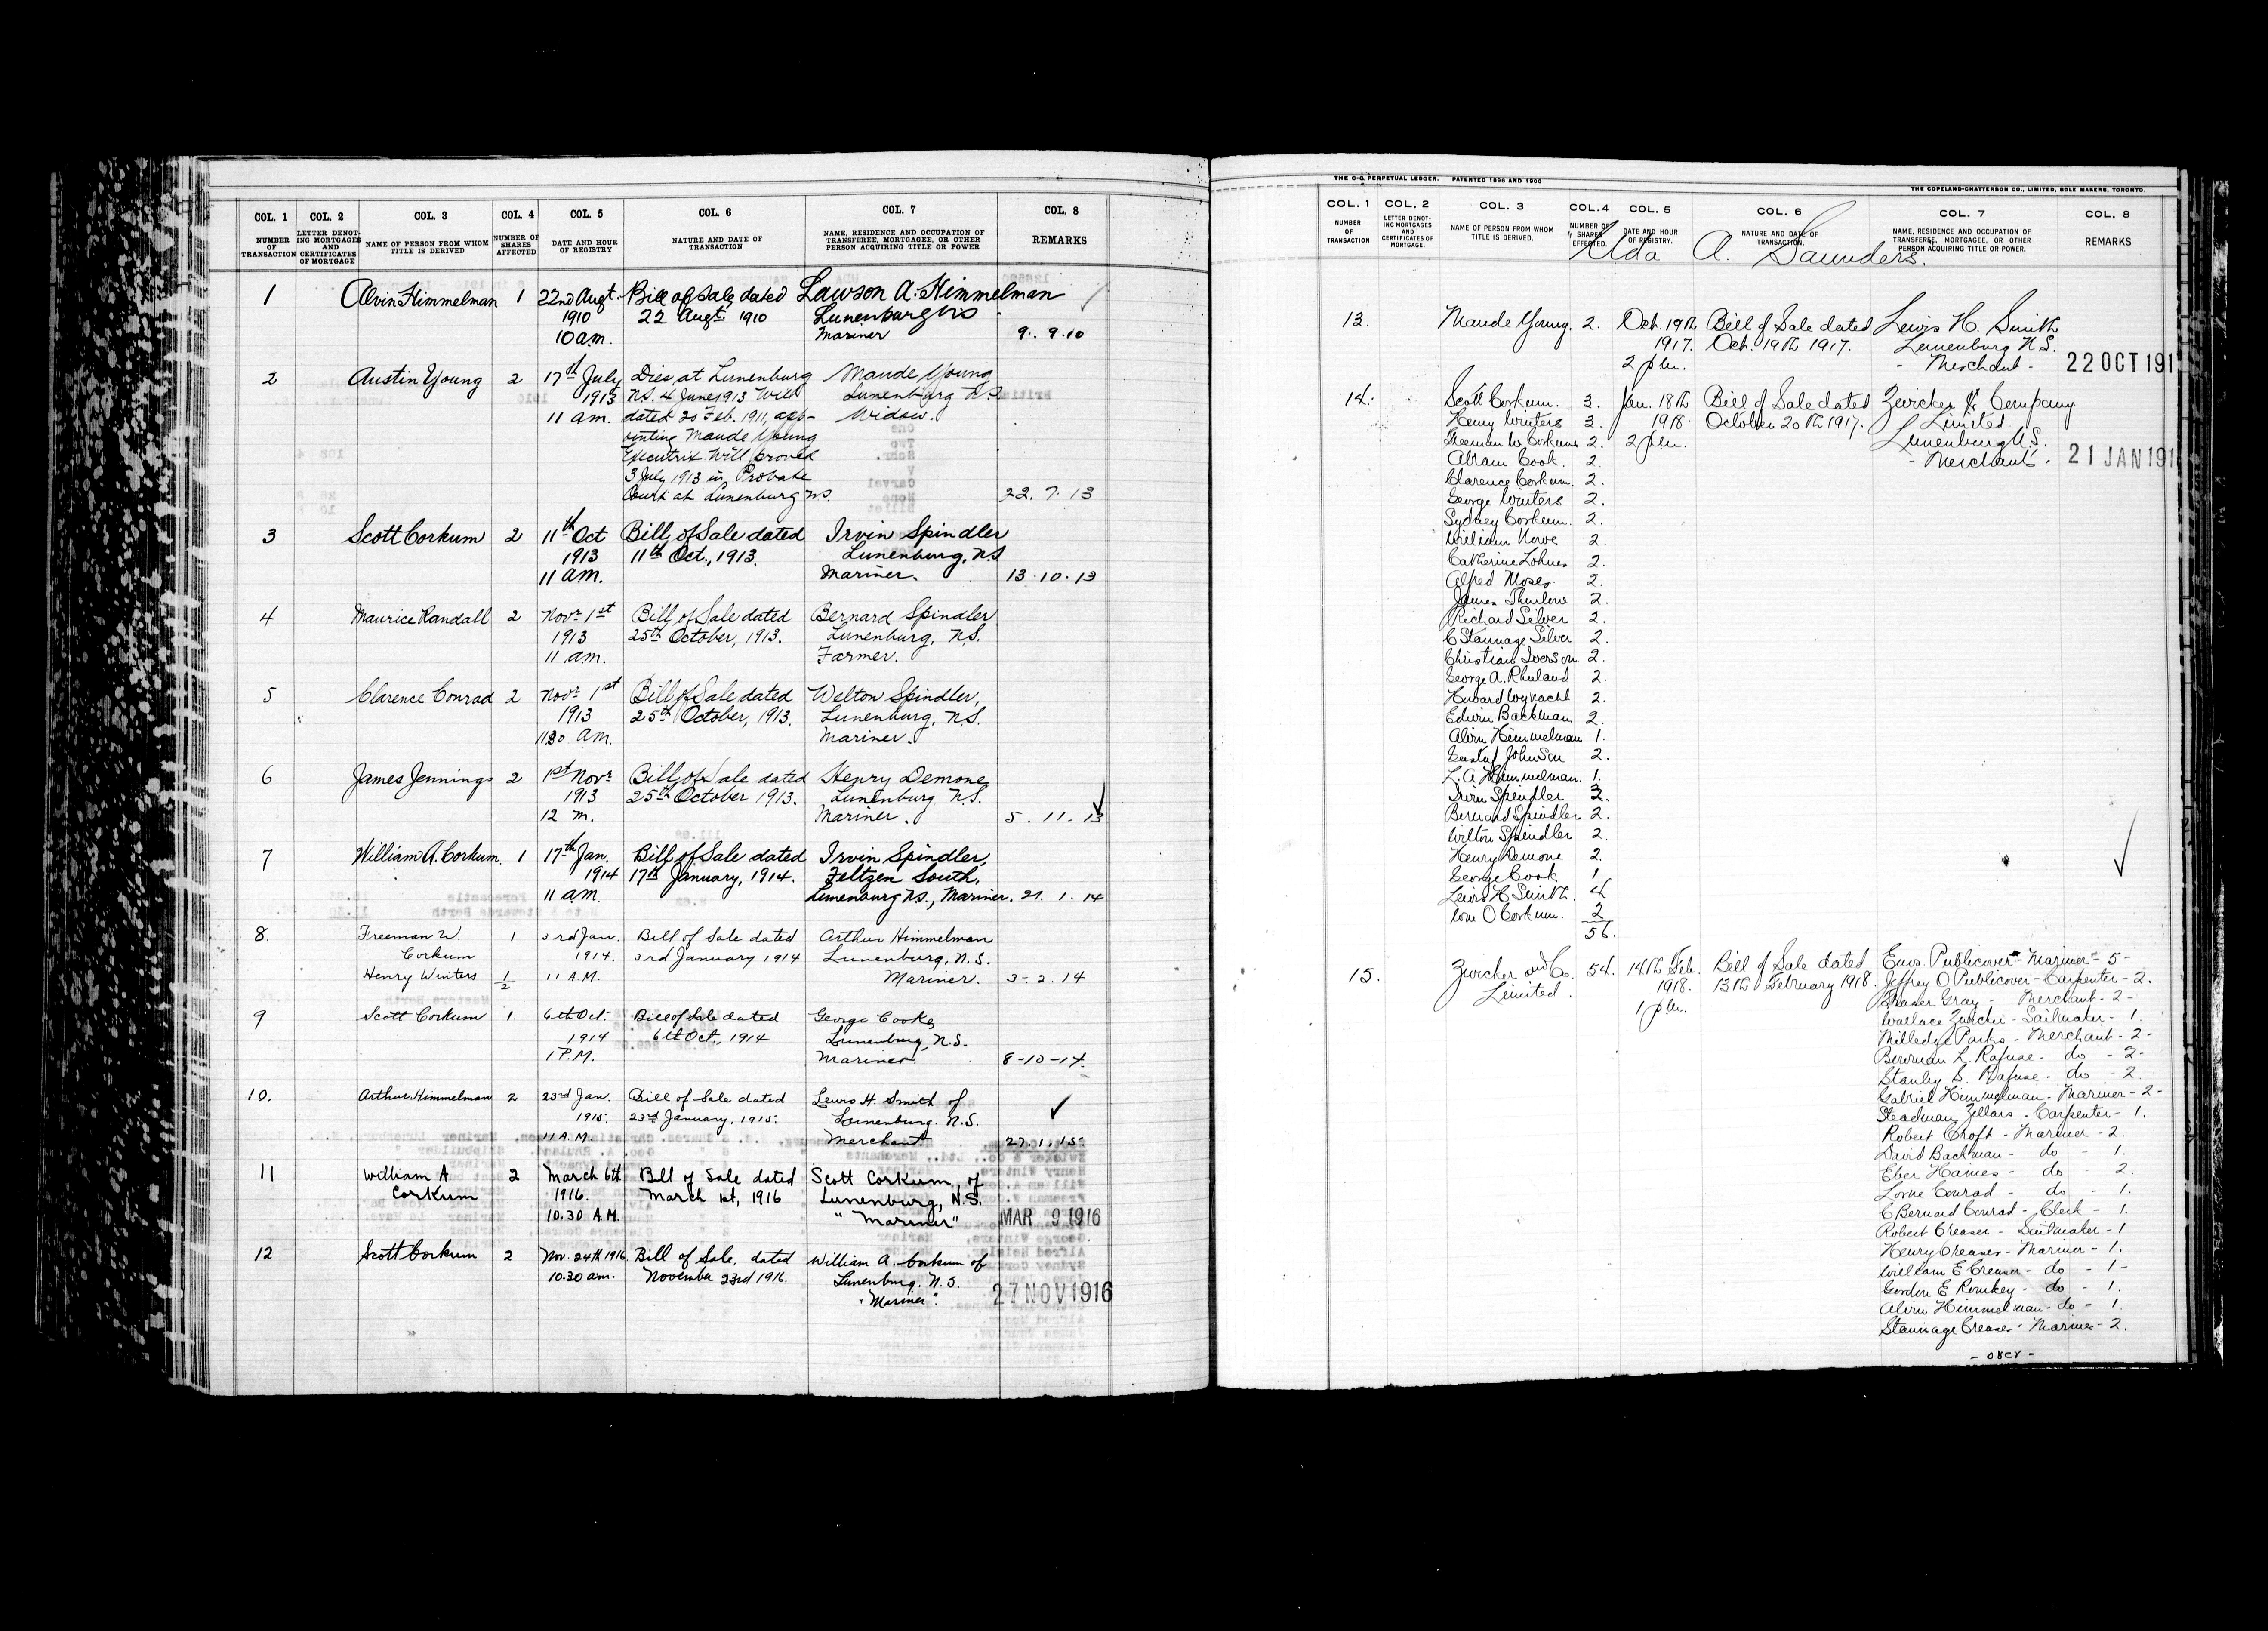 COL. 1 COL. 2 COL. 3 COL. 4 COL. 5 COL. 6 COL. 7 COL. 8
NUMBER OF TRANSACTION
LETTER DENOTING MORTGAGES AND CERTIFICATES OF MORTGAGE
NAME OF PERSON FROM WHOM TITLE IS DERIVED
NUMBER OF SHARES AFFECTED
DATE AND HOUR OF REGISTRY
NATURE AND DATE OF TRANSACTION
NAME, RESIDENCE AND OCCUPATION OF TRANSFEREE, MORTGAGEE, OR OTHER PERSON ACQUIRING TITLE OR POWER
REMARKS
1 Alvin Himmelman 1 22nd Augt. Bill of Sale dated Lawson A. Himmelman
1910 22 Augt 1910 Lunenburg NS
10 am. Mariner 9. 9. 10
2 Austin Young 2 17th July Died at Lunenburg Maude Young
1913 N.S. 4 June 1913 Will Lunenburg N.S.
11 am. dated 20 Feb. 1911, app- Widow.
ointing Maude Young
Executrix Will proved
3 July 1913 in Probate
Court at Lunenburg NS. 22. 7. 13
3 Scott Corkum 2 11th Oct Bill of Sale dated Irvin Spindler
1913 11th Oct., 1913. Lunenburg, NS
11 am. Mariner. 13.10.13
4 Maurice Randall 2 Novr 1st Bill of Sale dated Bernard Spindler
1913 25th October, 1913. Lunenburg, N.S.
11 am. Farmer.
5 Clarence Conrad 2 Novr 1st Bill of Sale dated Welton Spindler,
1913 25th October, 1913. Lunenburg, N.S.
1130 am. Mariner.
6 James Jennings 2 1st Novr Bill of Sale dated Henry Demone
1913 25th October 1913. Lunenburg N.S.
12 m. Mariner. 5. 11. 13
7 William A. Corkum. 1 17th Jan. Bill of Sale dated Irvin Spindler,
1914 17th January, 1914. Feltzen South,
11 am. Lunenburg N.S., Mariner. 21. 1. 14
8. Freeman W. 1 3rd Jan. Bill of Sale dated Arthur Himmelman
Corkum 1914. 3rd January 1914 Lunenburg, N.S.
Henry Winters 1/2 11 A.M. Mariner. 3-2.14
9 Scott Corkum 1. 6th Oct. Bill of Sale dated George Cooke
1914 6th Oct., 1914 Lunenburg, N.S.
1 P.M. Mariner. 8-10-14.
10. Arthur Himmelman 2 23rd Jan. Bill of Sale dated Lewis H. Smith of
1915. 23rd January, 1915. Lunenburg. N.S.
11 A.M. Merchant 27.1.15
11 William A 2 March 6th Bill of Sale dated Scott Corkum, of
Corkum 1916. March 1st, 1916 Lunenburg, N.S.
10.30 A.M. "Mariner" MAR 9 1916
12 Scott Corkum 2 Nov. 24th 1916 Bill of Sale, dated William A. Corkum of
10.30 am. November 23rd 1916. Lunenburg. N.S.
"Mariner". 27 NOV 1916
THE C-C. PERPETUAL LEDGER. PATENTED 1896 AND 1900
THE COPELAND-CHATTERSON CO., LIMITED, SOLE MAKERS, TORONTO.
COL. 1 COL. 2 COL. 3 COL. 4 COL. 5 COL. 6 COL. 7 COL. 8
NUMBER OF TRANSACTION
LETTER DENOTING MORTGAGES AND CERTIFICATES OF MORTGAGE.
NAME OF PERSON FROM WHOM TITLE IS DERIVED.
NUMBER OF SHARES EFFECTED.
DATE AND HOUR OF REGISTRY.
NATURE AND DATE OF TRANSACTION.
NAME, RESIDENCE AND OCCUPATION OF TRANSFEREE, MORTGAGEE, OR OTHER PERSON ACQUIRING TITLE OR POWER.
REMARKS
Uda A. Saunders.
13. Maude Young. 2. Oct. 19th Bill of Sale dated Lewis H. Smith
1917. Oct. 19th 1917. Lunenburg N.S.
2 pm. - Merchant - 22 OCT 191
14. Scott Corkum. 3. Jan. 18th Bill of Sale dated Zwicker & Company
Henry Winters 3. 1918 October 20th 1917. Limited
Freeman W. Corkum 2. 2 pm. Lunenburg N.S.
Abram Cook. 2. - Merchants. 21 JAN 191
Clarence Corkum. 2.
George Winters 2.
Sydney Corkum. 2.
William Howe 2.
Catherine Lohnes 2.
Alfred Moser. 2.
James Thurlow 2.
Richard Silver 2.
C Stannage Silver 2.
Christian Iverson. 2.
George A. Rhuland 2.
Howard Wynacht 2.
Edwin Backman 2.
Alvin Himmelman 1.
Gustaf Johnson 2.
L. A Himmelman. 1.
Irvin Spindler 3.
Bernard Spindler 2.
Welton Spindler 2.
Henry Demone 2.
George Cook 1
Lewis H Smith. 4
Wm O Corkum. 2
56.
15. Zwicker and Co. 54. 14th Feb. Bill of Sale dated Enos. Publicover - Mariner - 5 -
Limited. 1918. 13th February 1918. Jeffrey O Publicover - Carpenter - 2.
1 pm. Fraser Gray - Merchant - 2 -
Wallace Zwicker - Sailmaker - 1.
Milledge Parks - Merchant - 2 -
Bowman L. Rafuse - do - 2 -
Stanley C. Rafuse - do - 2.
Gabriel Himmelman - Mariner - 2 -
Steadman Zellars - Carpenter - 1.
Robert Croft - Mariner - 2.
David Backman - do - 1.
Eber Haines - do - 2.
Lorne Conrad - do - 1.
C Bernard Conrad - Clerk - 1.
Robert Creaser - Sailmaker - 1
Henry Creaser - Mariner - 1.
William E Creaser - do - 1 -
Gordon E Romkey - do - 1.
Alvin Himmelman - do - 1.
Stannage Creaser - Mariner - 2.
- over -